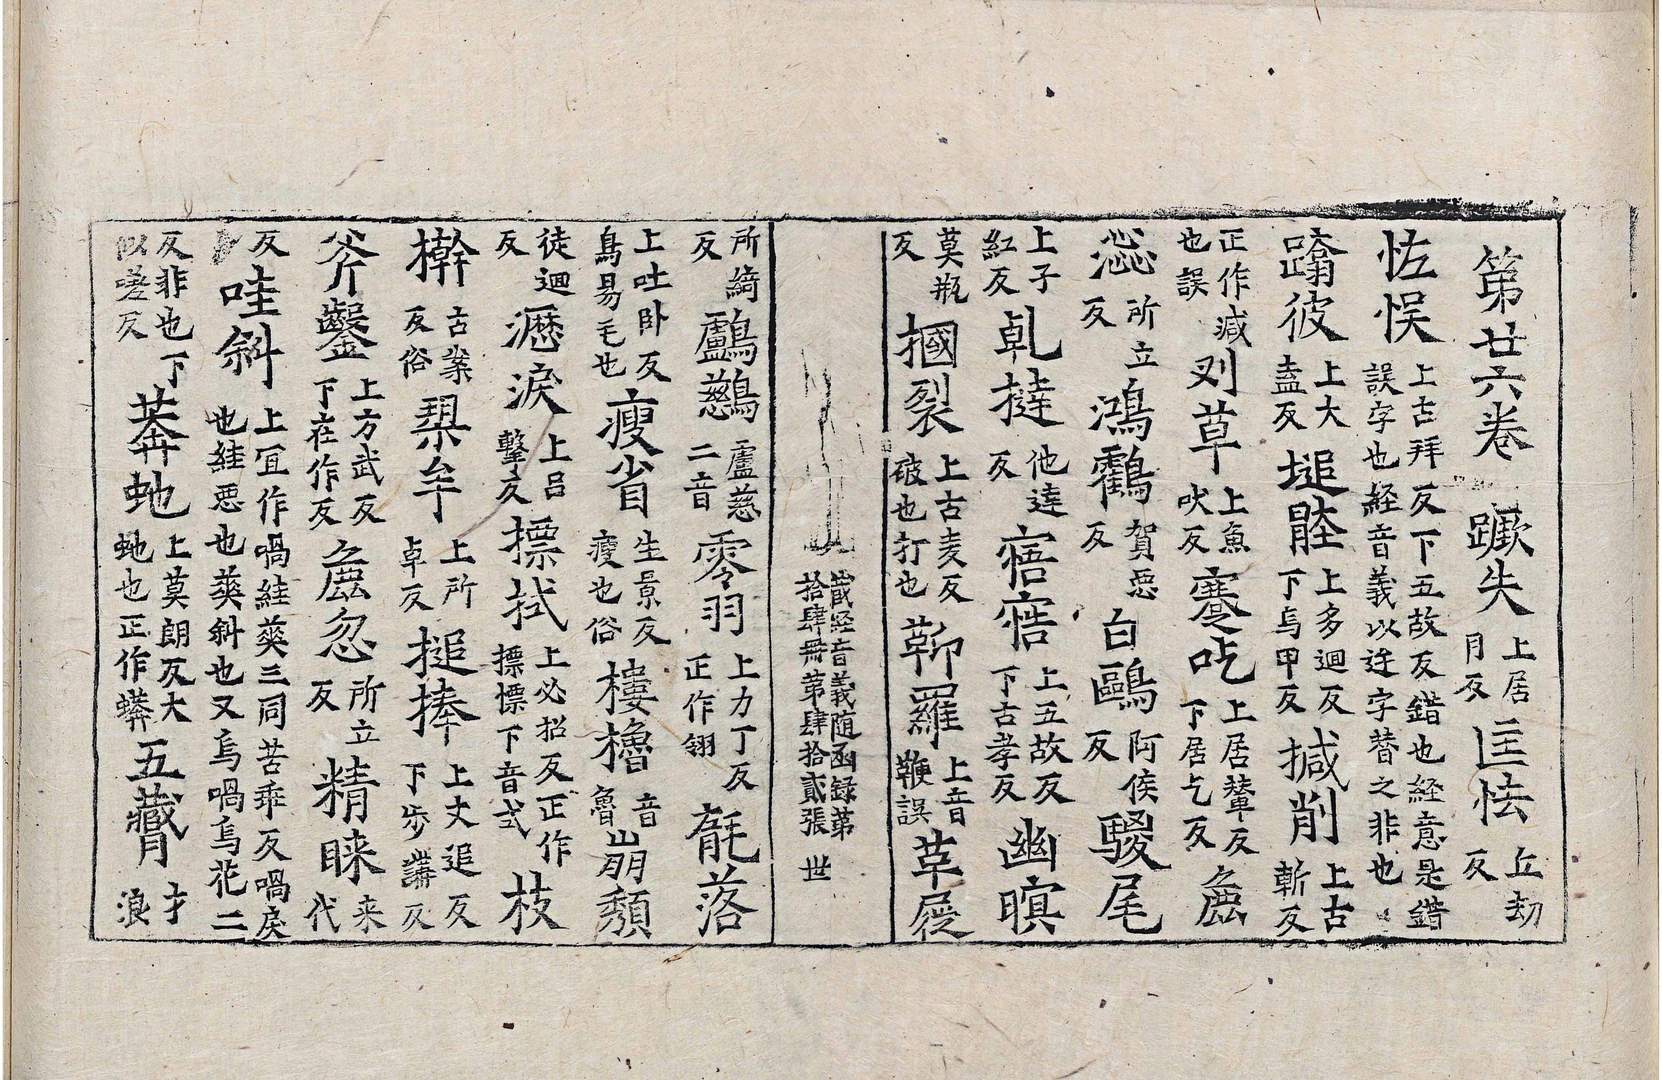 第廿六卷 蹶失 上居月反 恇怯 丘刼反
恠悮 上古拜反下五故反錯也経意是錯誤字也経音義以迕字替之非也
蹹彼 上大盍反 塠䏶 上多迴反下烏甲反 搣削 上古斬反
正作減也誤 刈草 上魚吠反 蹇吃 上居輦反下居乞反 麁
澁 所立反 鴻鸖 賀惡反 白鷗 阿侯反 騣尾
上子紅反 乹撻 他達反 寤窹 上五故反下古孝反 幽暝
莫瓶反 摑裂 上古麦反破也打也 鞕羅 上音鞭誤 草屣
蔵経音義随函録第拾肆冊第肆拾貳張 世
所綺反 鸕鷀 盧慈二音 零羽 上力丁反正作翎 毻落
上吐卧反鳥易毛也 瘦省 生景反瘦也俗 樓櫓 音魯 崩頽
徒迴反 瀝淚 上吕擊反 摽拭 上必招反正作摽慓下音式 枝
檊 古案反俗 槊牟 上所卓反 搥捧 上丈追反下步講反
斧鑿 上方武反下在作反 麁忽 所立反 精睞 来代
反 哇斜 上冝作喎絓䔢三同苦乖反喎戾也絓惡也䔢斜也又烏喎烏花二
反非也下似嗟反 莽虵 上莫朗反大虵也正作蟒 五藏 才浪